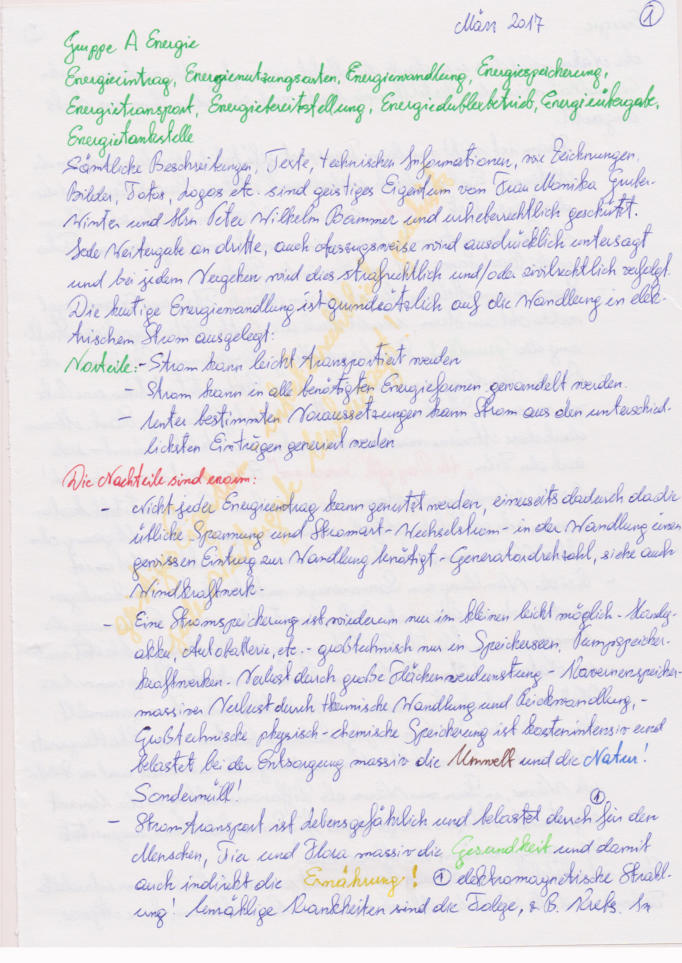 März 2017 ①
Gruppe A Energie
Energieeintrag, Energienutzungsarten, Energiewandlung, Energiespeicherung,
Energietransport, Energiebereitstellung, Energiedublexbetrieb, Energieübergabe,
Energietankstelle
Sämtliche Beschreibungen, Texte, technischen Informationen, wie Zeichnungen,
Bilder, Fotos, Logos etc. sind geistiges Eigentum von Frau Monika Gruber-
Winter und Hrn Peter Wilhelm Bammer und urheberrechtlich geschützt.
Jede Weitergabe an dritte, auch auszugsweise wird ausdrücklich untersagt
und bei jedem Vergehen wird dies strafrechtlich und/oder zivilrechtlich verfolgt.
Die heutige Energiewandlung ist grundsätzlich auf die Wandlung in elek-
trischem Strom ausgelegt:
Vorteile: - Strom kann leicht transportiert werden
- Strom kann in alle benötigten Energieformen gewandelt werden.
- Unter bestimmten Voraussetzungen kann Strom aus den unterschied-
lichsten Einträgen generiert werden
Die Nachteile sind enorm:
- Nicht jeder Energieeintrag kann genutzt werden, einerseits dadurch da die
übliche Spannung und Stromart - Wechselstrom - in der Wandlung einen
gewissen Eintrag zur Wandlung benötigt - Generatordrehzahl, siehe auch
Windkraftwerk -
- Eine Stromspeicherung ist wiederum nur im kleinen leicht möglich - Handy-
akku, Autobatterie, etc. - großtechnisch nur in Speicherseen, Pumpspeicher-
kraftwerken - Verlust durch große Flächenverdunstung - Kavernenspeicher-
massiver Verlust durch thermische Wandlung und Rückwandlung, -
Großtechnische physisch-chemische Speicherung ist kostenintensiv und
belastet bei der Entsorgung massiv die Umwelt und die Natur!
Sondermüll!
- Stromtransport ist lebensgefährlich und belastet durch ① für den
Menschen, Tier und Flora massiv die Gesundheit und damit
auch indirekt die Ernährung! ① elektromagnetische Strahl-
ung! Unzählige Krankheiten sind die Folge, z B. Krebs. In